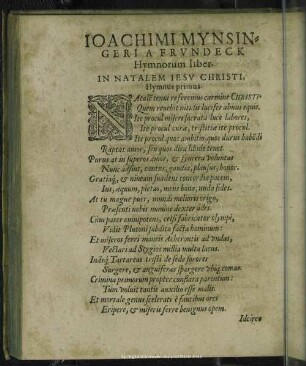 IOACHIMI MYNSIN-
GERI A FRVNDECK
Hymnorum liber.
IN NATALEM IESV CHRISTI,
Hymnus primus.
NAtale tenui referemus carmine CHRISTI,
Quem revehit nitidis lucifer almus equis.
Ite procul misero sacrata luce labores,
Ite procul curæ, tristitiæ ite procul.
Ite procul quos ambitio, quos durus habēdi
Raptat amor, seu quos dira libido tenet.
Purus at in superos amor, & syncera voluntas
Nunc adsint, cantus, gaudia, plausus, honor.
Gratiaq́, & niveum suadens concordia pacem,
Ius, æquum, pietas, mens bona, nuda fides.
At tu magne puer, mundi melioris origo,
Præsenti nobis numine dexter ades.
Cùm pater omnipotens, celsi fabricator olympi,
Vidit Plutoni subdita facta hominum:
Et miseros ferri manes Acherontis ad undas,
Vectari ad Stygios millia multa lacus.
Indeq́ Tartareas tristi de sede sorores
Surgere, & anguiferas spargere ubiq́; comas.
Crimina primorum propter conflata parentum:
Tum voluit tantis auxilio esse malis.
Et mortale genus sceleratis è faucibus orci
Eripere, & miseris ferre benignus opem.
Idcirco